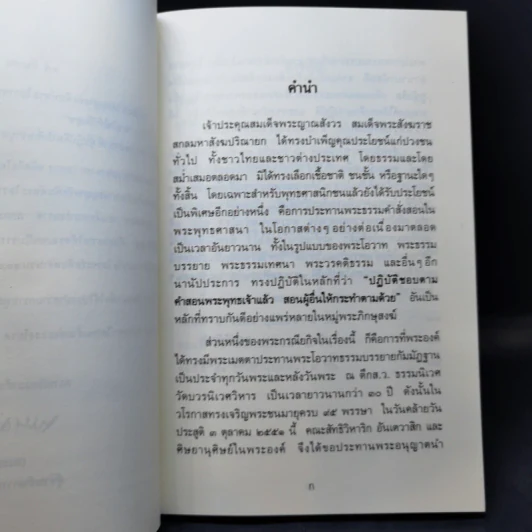 คำนำ
เจ้าประคุณสมเด็จพระญาณสังวร สมเด็จพระสังฆราช
สกลมหาสังฆปริณายก ได้ทรงบำเพ็ญคุณประโยชน์แก่ปวงชน
ทั่วไป ทั้งชาวไทยและชาวต่างประเทศ โดยธรรมและโดย
สม่ำเสมอตลอดมา มิได้ทรงเลือกเชื้อชาติ ชนชั้น หรือฐานะใดๆ
ทั้งสิ้น โดยเฉพาะสำหรับพุทธศาสนิกชนแล้วยังได้รับประโยชน์
เป็นพิเศษอีกอย่างหนึ่ง คือการประทานพระธรรมคำสั่งสอนใน
พระพุทธศาสนา ในโอกาสต่างๆ อย่างต่อเนื่องมาตลอด
เป็นเวลาอันยาวนาน ทั้งในรูปแบบของพระโอวาท พระธรรม
บรรยาย พระธรรมเทศนา พระวรคติธรรม และอื่นๆ อีก
นานัปประการ ทรงปฏิบัติในหลักที่ว่า "ปฏิบัติชอบตาม
คำสอนพระพุทธเจ้าแล้ว สอนผู้อื่นให้กระทำตามด้วย" อันเป็น
หลักที่ทราบกันดีอย่างแพร่หลายในหมู่พระภิกษุสงฆ์
ส่วนหนึ่งของพระกรณียกิจในเรื่องนี้ ก็คือการที่พระองค์
ได้ทรงมีพระเมตตาประทานพระโอวาทธรรมบรรยายกัมมัฏฐาน
เป็นประจำทุกวันพระและหลังวันพระ ณ ตึกส.ว. ธรรมนิเวศ
วัดบวรนิเวศวิหาร เป็นเวลายาวนานกว่า ๓๐ ปี ดังนั้นใน
วโรกาสทรงเจริญพระชนมายุครบ ๙๕ พรรษา ในวันคล้ายวัน
ประสูติ ๓ ตุลาคม ๒๕๕๑ นี้ คณะสัทธิวิหาริก อันเตวาสิก และ
ศิษยานุศิษย์ในพระองค์ จึงได้ขอประทานพระอนุญาตนำ
ก